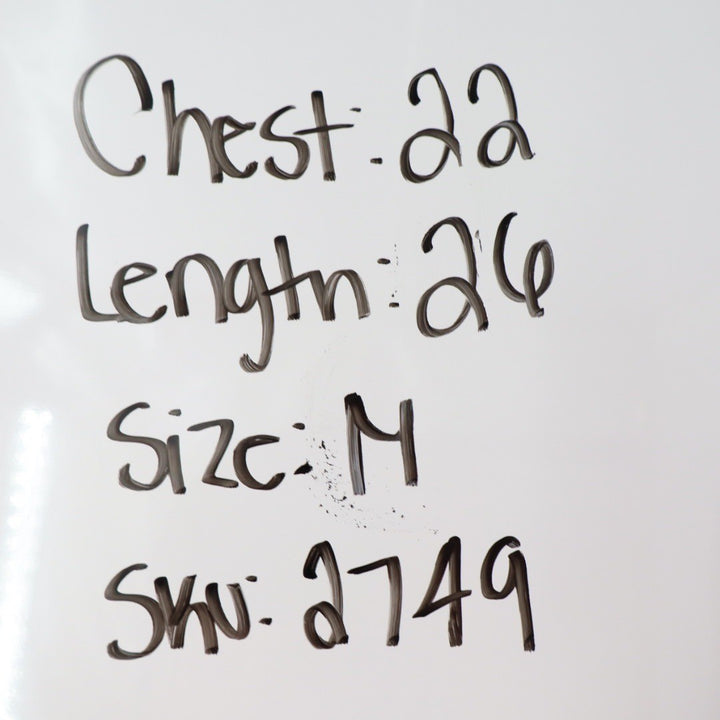 Chest: 22
Length: 26
Size: M
Sku: 2749